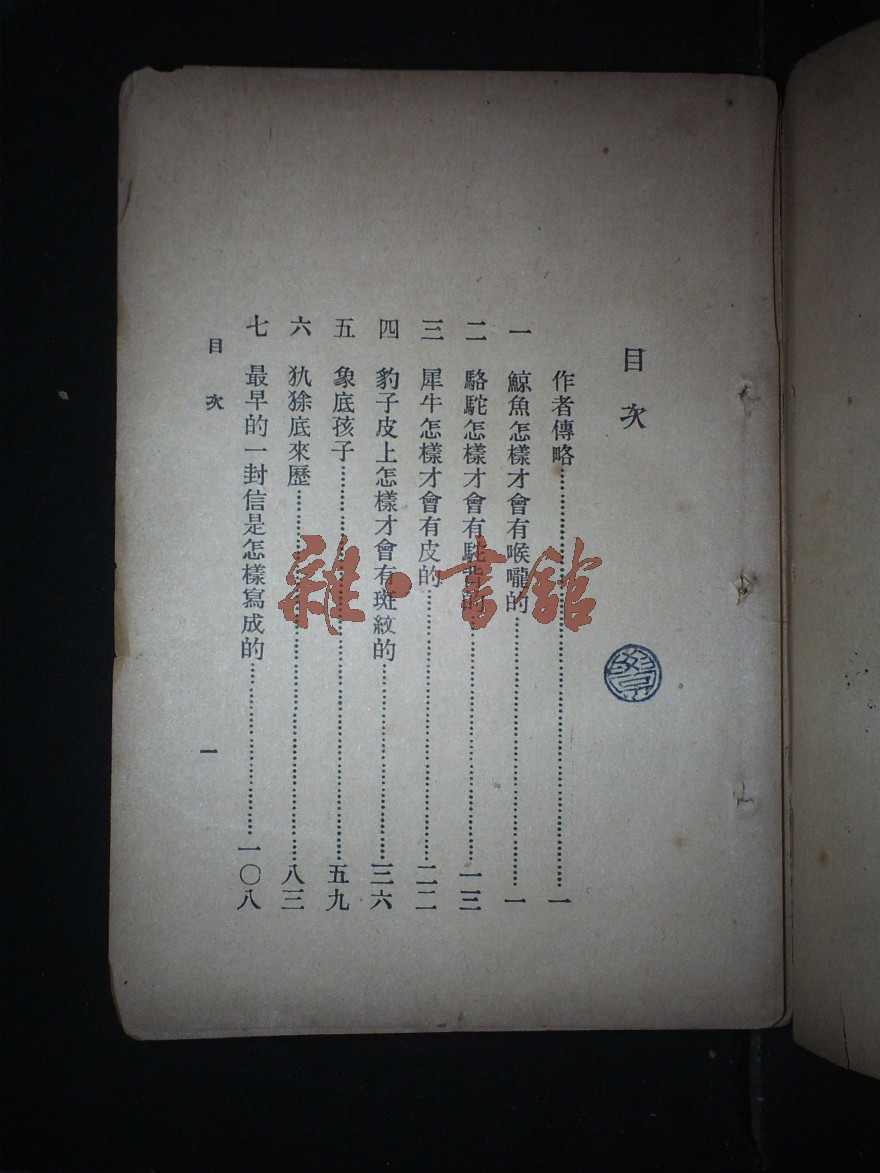 目次
作者傳略……一
一 鯨魚怎樣才會有喉嚨的……一
二 駱駝怎樣才會有駝背的……一三
三 犀牛怎樣才會有皮的……二二
四 豹子皮上怎樣才會有斑紋的……三六
五 象底孩子……五九
六 犰狳底來歷……八三
七 最早的一封信是怎樣寫成的……一〇八
目次 一
雜·書館